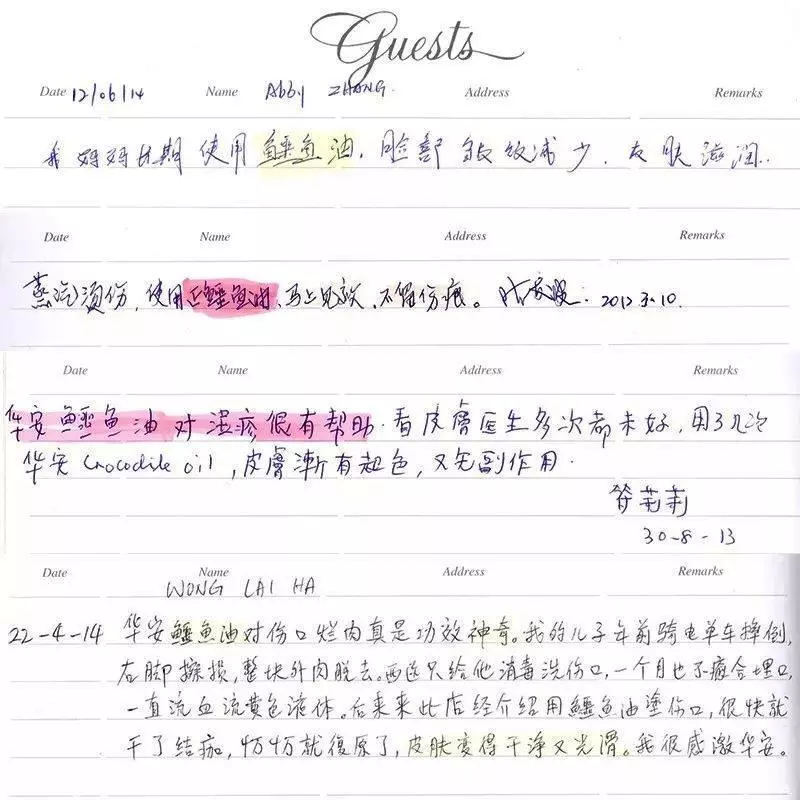 Guests
Date 12/06/14 Name Abby ZHANG Address Remarks
我妈妈长期使用鳄鱼油，脸部皱纹减少，皮肤滋润.
Date Name Address Remarks
蒸汽烫伤，使用鳄鱼油，马上见效，不留伤痕。 2012.3.10.
Date Name Address Remarks
华安鳄鱼油对湿疹很有帮助. 看皮膚医生多次都未好，用了几次
华安 Crocodile oil，皮膚漸有起色，又无副作用.
30-8-13
Date Name Address Remarks
WONG LAI HA
22-4-14 华安鳄鱼油对伤口烂肉真是功效神奇。我的儿子年前骑电单车摔倒，
右脚擦损，整块外肉脱去。西医只给他消毒洗伤口，一个月也不癒合埋口，
一直流血流黄色液体。后来来此店经介绍用鱷鱼油塗伤口，很快就
干了结痂，慢慢就復原了，皮肤变得干净又光滑。我很感激华安。